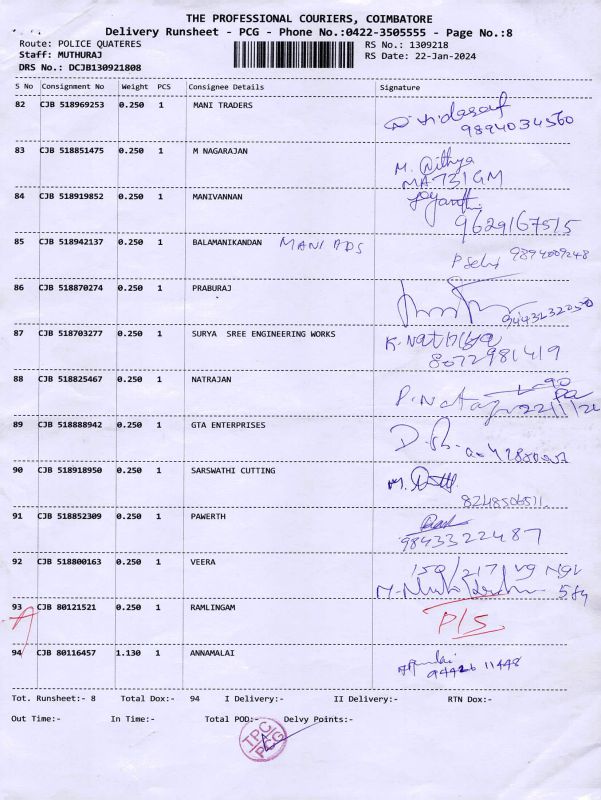 THE PROFESSIONAL COURIERS, COIMBATORE
Delivery Runsheet - PCG - Phone No.:0422-3505555 - Page No.:8
Route: POLICE QUATERES RS No.: 1309218
Staff: MUTHURAJ RS Date: 22-Jan-2024
DRS No.: DCJB130921808
S No Consignment No Weight PCS Consignee Details Signature
82 CJB 518969253 0.250 1 MANI TRADERS
9894034560
83 CJB 518851475 0.250 1 M NAGARAJAN M. Nithya
84 CJB 518919852 0.250 1 MANIVANNAN
9629167515
85 CJB 518942137 0.250 1 BALAMANIKANDAN MANI ADS 9894009248
86 CJB 518870274 0.250 1 PRABURAJ
9443232050
87 CJB 518703277 0.250 1 SURYA SREE ENGINEERING WORKS
8072981419
88 CJB 518825467 0.250 1 NATRAJAN
89 CJB 518888942 0.250 1 GTA ENTERPRISES
90 CJB 518918950 0.250 1 SARSWATHI CUTTING
8248506511
91 CJB 518852309 0.250 1 PAWERTH
9843322487
92 CJB 518800163 0.250 1 VEERA
93 CJB 80121521 0.250 1 RAMLINGAM P/S
94 CJB 80116457 1.130 1 ANNAMALAI
94426 11448
Tot. Runsheet:- 8 Total Dox:- 94 I Delivery:- II Delivery:- RTN Dox:-
Out Time:- In Time:- Total POD:- Delvy Points:-
TPC
PCG